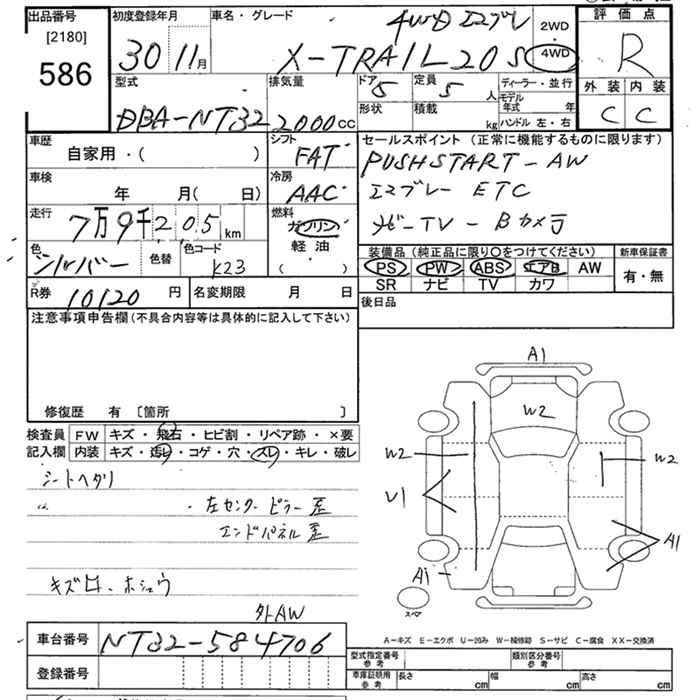 出品番号
[2180]
586
初度登録年月
30 11月
車名・グレード
4WD エマブレ
X-TRAIL 20S
2WD
・
4WD
評価点
R
外装 内装
C C
型式
DBA-NT32
排気量
2000cc
ドア
5
形状
定員
5人
積載
kg
ディーラー・並行
モデル年式 年
ハンドル 左・右
車歴
自家用・( )
シフト
FAT
車検
年 月( 日)
冷房
AAC
走行
7万9千205km
燃料
ガソリン
軽油
( )
色
シルバー
色替
色コード
K23
R券
10120円
名変期限 月 日
セールスポイント(正常に機能するものに限ります)
PUSHSTART-AW
エマブレー ETC
ナビーTV-Bカメラ
装備品(純正品に限り〇をつけてください)
PS PW ABS エアB AW
SR ナビ TV カワ
新車保証書
有・無
後日品
注意事項申告欄(不具合内容等は具体的に記入して下さい)
修復歴 有 [箇所 ]
検査員
記入欄
FW キズ・飛石・ヒビ割・リペア跡・×要
内装 キズ・汚レ・コゲ・穴・スレ・キレ・破レ
シートヘタリ
左センターピラー歪
エンドパネル歪
キズ凹ホシュウ
外AW
A1
W2
W2
W2
U1
A1
A1
スペア
A-キズ E-エクボ U-凹み W-補修跡 S-サビ C-腐食 XX-交換済
車台番号
NT32-584706
登録番号
型式指定番号
参考
類別区分番号
参考
車庫証明用
参考
長さ cm
幅 cm
高さ cm